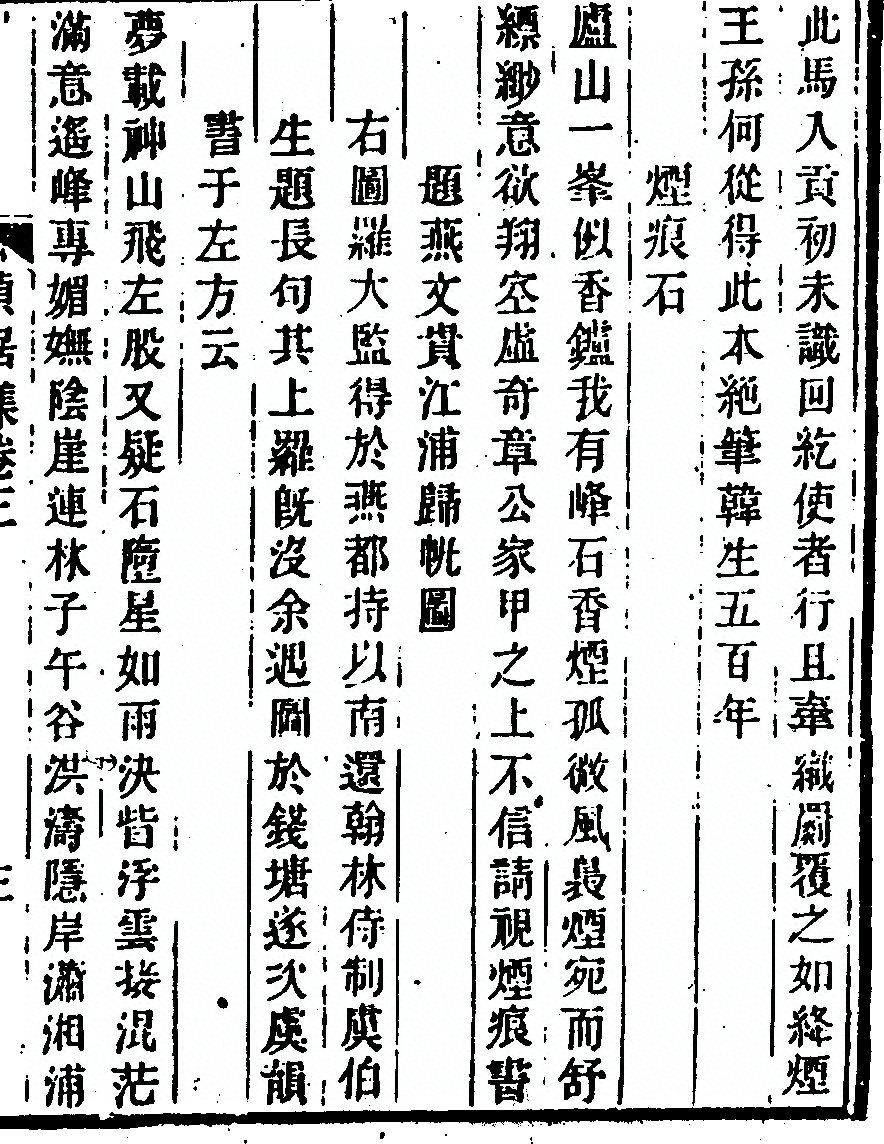 此馬入貢初未識回紇使者行且牽織罽覆之如絳煙
王孫何從得此本絶筆韓生五百年
煙痕石
廬山一峯似香鑪我有峰石香煙孤微風裊煙宛而舒
縹緲意欲翔空虛奇章公家甲之上不信請視煙痕書
題燕文貴江浦歸帆圖
右圖羅大監得於燕都持以南還翰林待制虞伯
生題長句其上羅旣没余遇圖於錢塘遂次虞韻
書于左方云
夢載神山飛左股又疑石墮星如雨決眥浮雲接混茫
滿意遙峰專媚嫵陰崖連林子午谷洪濤隱岸瀟湘浦
貞居集卷三
三